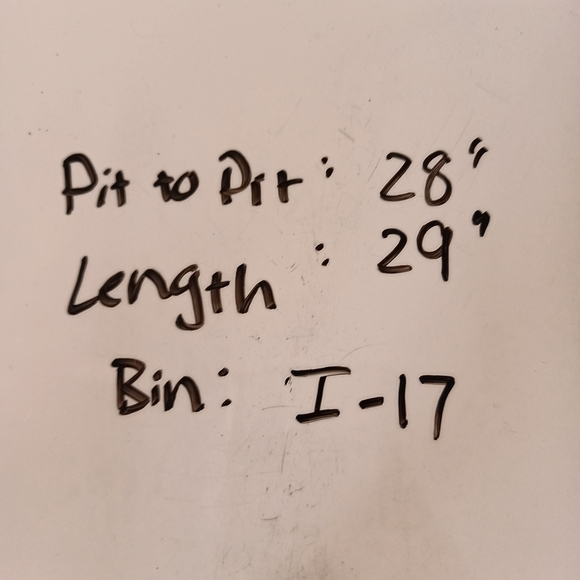 Pit to Pit: 28"
Length: 29"
Bin: I-17